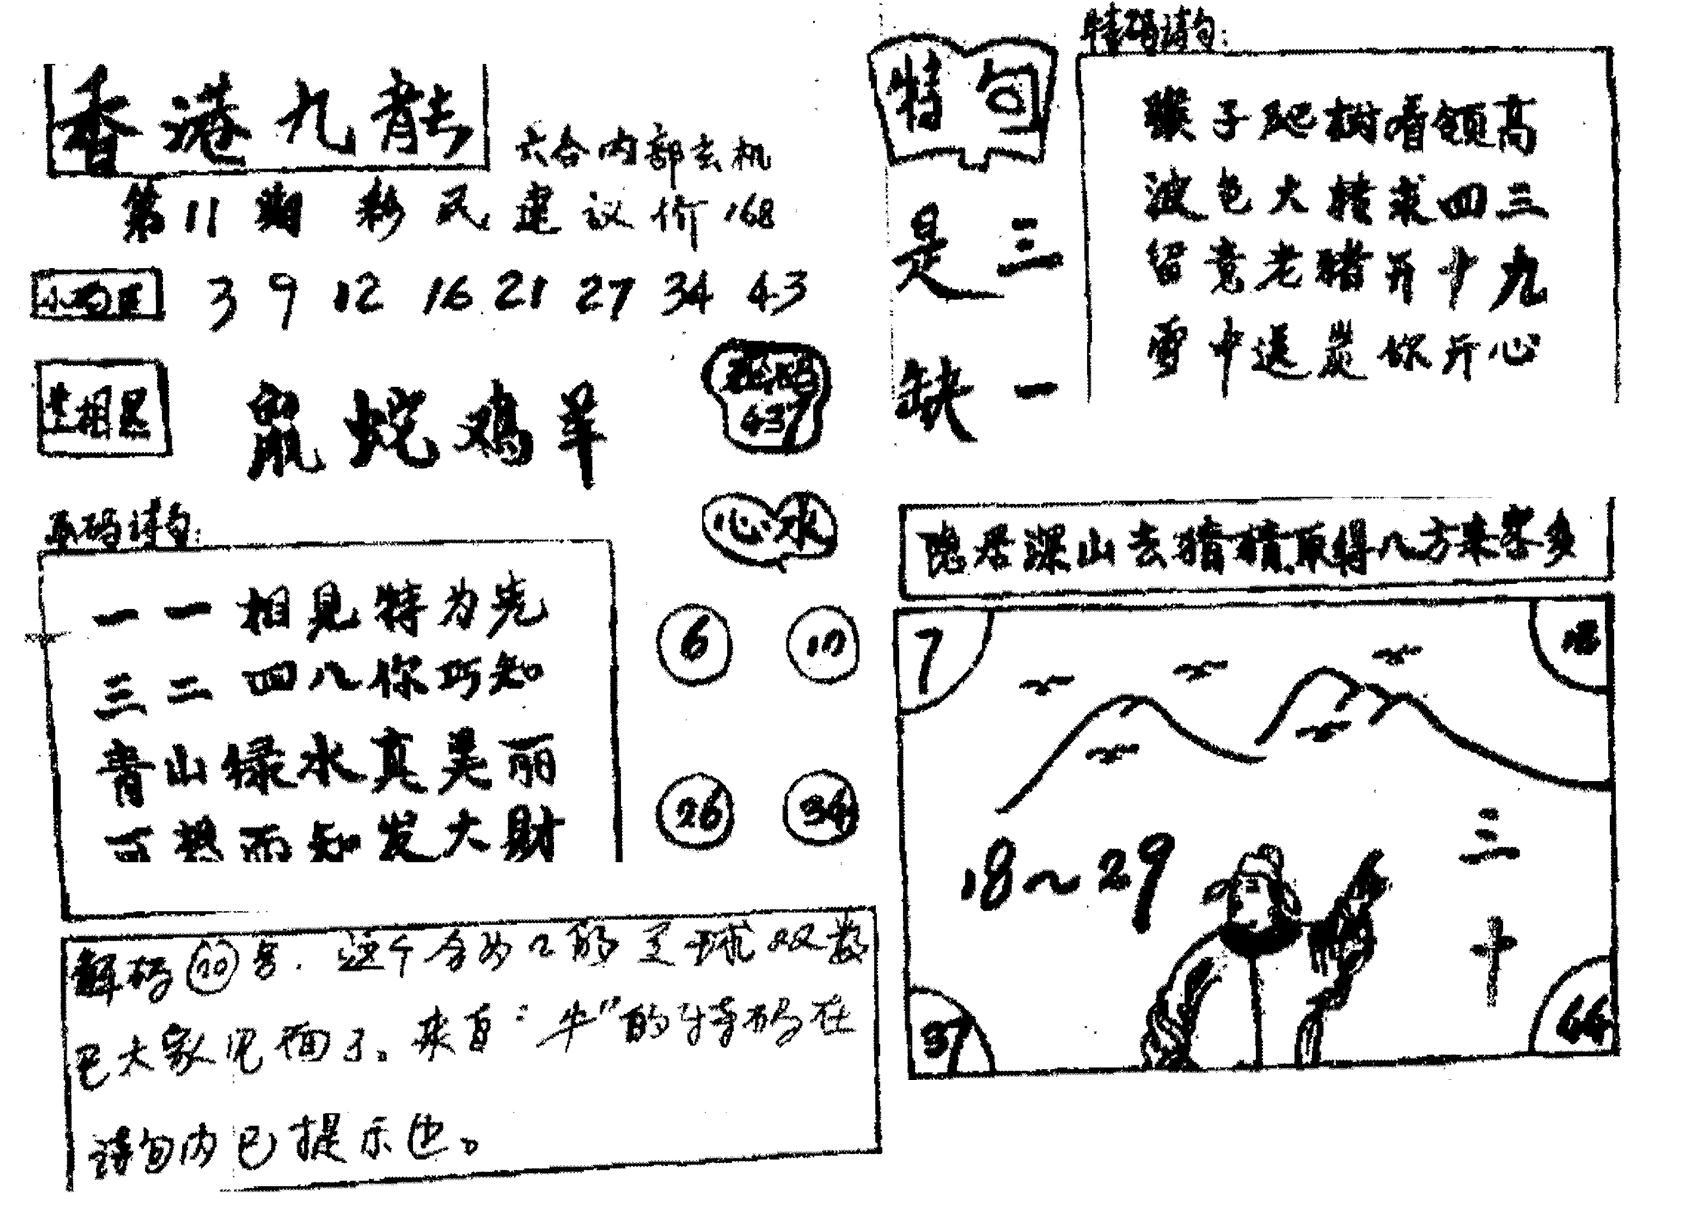 香港九龍
六合内部玄机
第11期 彩民建议价168
3 9 12 16 21 27 34 43
生相是
鼠蛇鸡羊
437
心水
诗句:
一一相见特为先
三二四八你巧知
青山绿水真美丽
可想而知发大财
6 10
26 34
解码 20 号. 这个合为2的 球双数
已大家见面了。来自"牛"的特码在
诗句内已提示也。
特句
是三
缺一
特码诗句:
猴子爬树看领高
波色大猜求四三
留意老猪开十九
雪中送炭你开心
隐居深山去猜猜取得八方来客多
7
18~29
三十
37